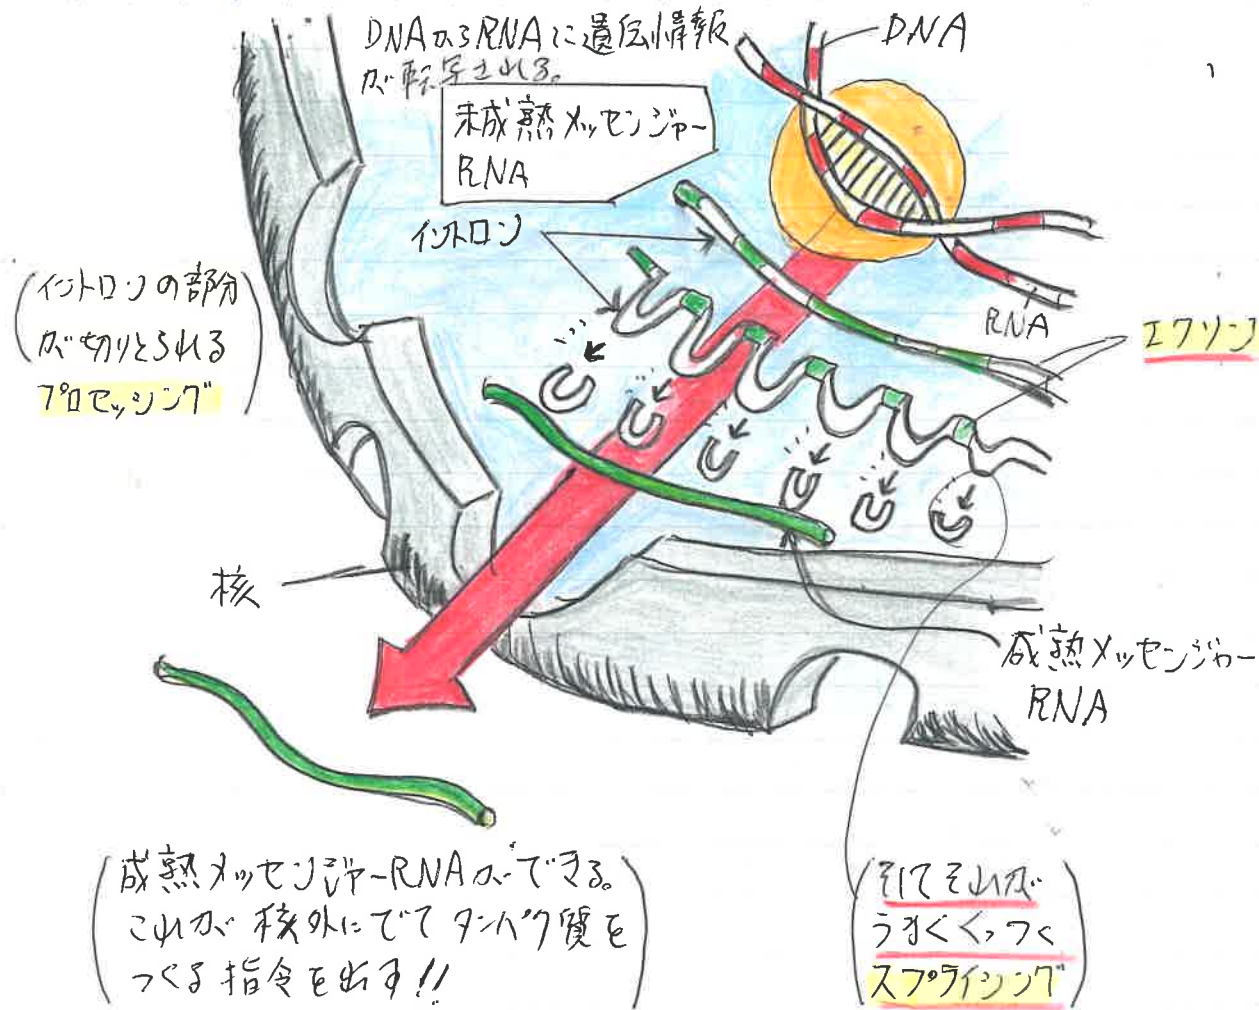 DNAからRNAに遺伝情報
が転写される。
DNA
未成熟メッセンジャー
RNA
イントロン
(イントロンの部分
が切りとられる
プロセッシング)
RNA
エクソン
核
成熟メッセンジャー
RNA
(成熟メッセンジャーRNAができる。
これが核外にでてタンパク質を
つくる指令を出す!!)
(そしてそれが
うまくくっつく
スプライシング)